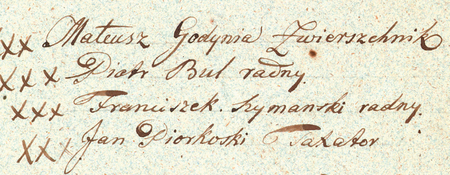 xxx Mateusz Godynia Zwierszchnik
xxx Piotr Bul radny
xxx Franciszek Szymanski radny.
xxx Jan Piorkoski Taxator